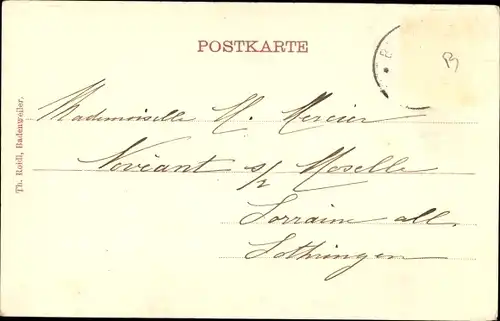 POSTKARTE
B
B
Mademoiselle M. Mercier
Novéant s/ Moselle
Lorraine all.
Lothringen
Th. Roidl, Badenweiler.